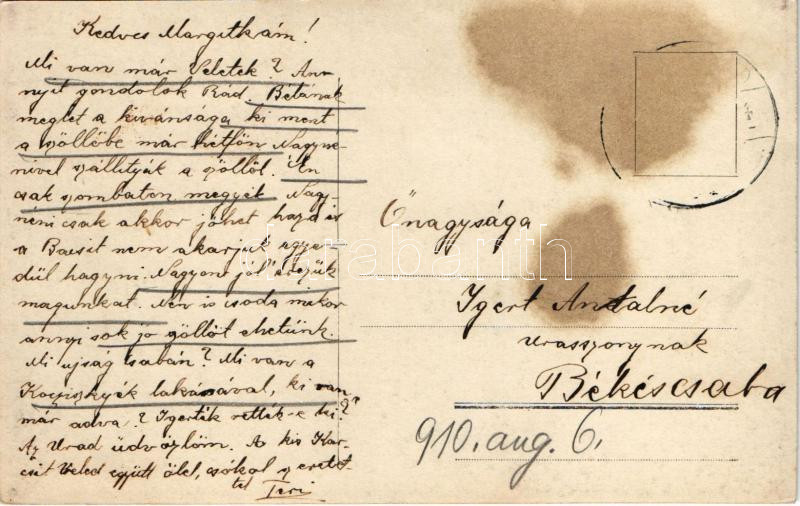 Kedves Margitkám!
Mi van már Veletek? An-
nyit gondolok Rád. Bétának
meglet a kivánsága, ki ment
a szöllöbe már hétfön Nagyné-
nivel szállitják a szöllöt. Én
csak szombaton megyek. Nagy-
néni csak akkor jöhet haza is
a Bacsit nem akarjuk egye-
dül hagyni. Nagyon jól érezük
magunkat. Nem is csoda mikor
annyi sok jo szöllöt ehetünk.
Mi ujság Csabán? Mi van a
lakásával, ki van
már adva? Igerték vették-e ki?
Az Urad üdvözlöm. A kis Kar-
csit Veled együtt ölel, csókol szeretet-
tel Teri
Őnagysága
Igert Antalné
Urasszonynak
Békéscsaba
910. aug. 6.
darabanth